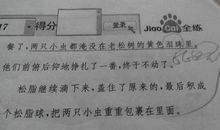 得分
登录
JiaoCai全练
餐了,两只小虫都淹没在老松树的黄色泪珠里。
他们前俯后仰地挣扎了一番,终于不动了。
松脂继续滴下来,盖住了原来的,最后积成
个松脂球,把两只小虫重重包裹在里面。